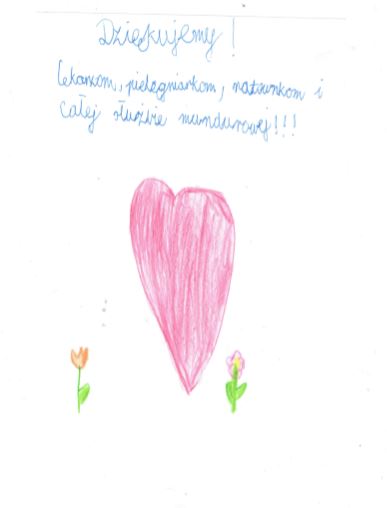 Dziękujemy!
Lekarzom, pielęgniarkom, ratunkom i
całej służbie mundurowej!!!